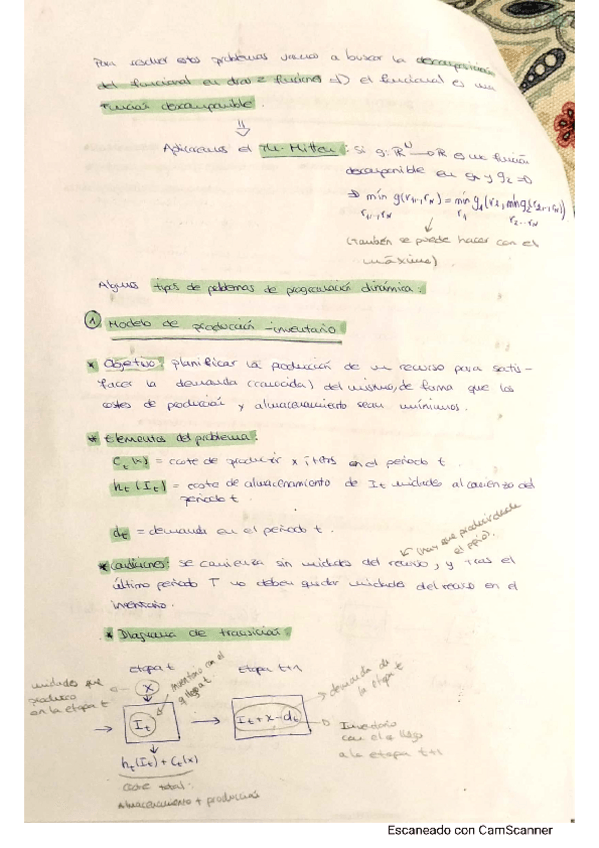 Para resolver estos problemas vamos a buscar la descomposición
del funcional en otras 2 funciones si el funcional es una
función descomponible.
⇓
Aplicaremos el Th. Mitten: Si g: ℝᴺ → ℝ es una función
descomponible en g₁ y g₂ ⇒
⇒ mín g(r₁,..,r_N) = mín g₁(r₁, mín g₂(r₂,..,r_N))
r₁,..,r_N r₁ r₂...r_N
(también se puede hacer con el
máximo)
Algunos tipos de problemas de programación dinámica:
① Modelo de producción-inventario
* Objetivo: planificar la producción de un recurso para satis-
facer la demanda (conocida) del mismo, de forma que los
costes de producción y almacenamiento sean mínimos.
* Elementos del problema:
Cₜ(x) = coste de producir x ítems en el periodo t
hₜ(Iₜ) = coste de almacenamiento de Iₜ unidades al comienzo del
periodo t.
dₜ = demanda en el periodo t.
(hay que producir desde
el ppio).
* Condiciones: se comienza sin unidades del recurso, y tras el
último periodo T no deben quedar unidades del recurso en el
inventario.
* Diagrama de transición:
etapa t
etapa t+1
unidades que
produzco
en la etapa t
x
inventario con el
q llego a t.
demanda de
la etapa t
Iₜ
Iₜ + x - dₜ
Inventario
con el q llego
a la etapa t+1
hₜ(Iₜ) + Cₜ(x)
coste total:
almacenamiento + producción
Escaneado con CamScanner